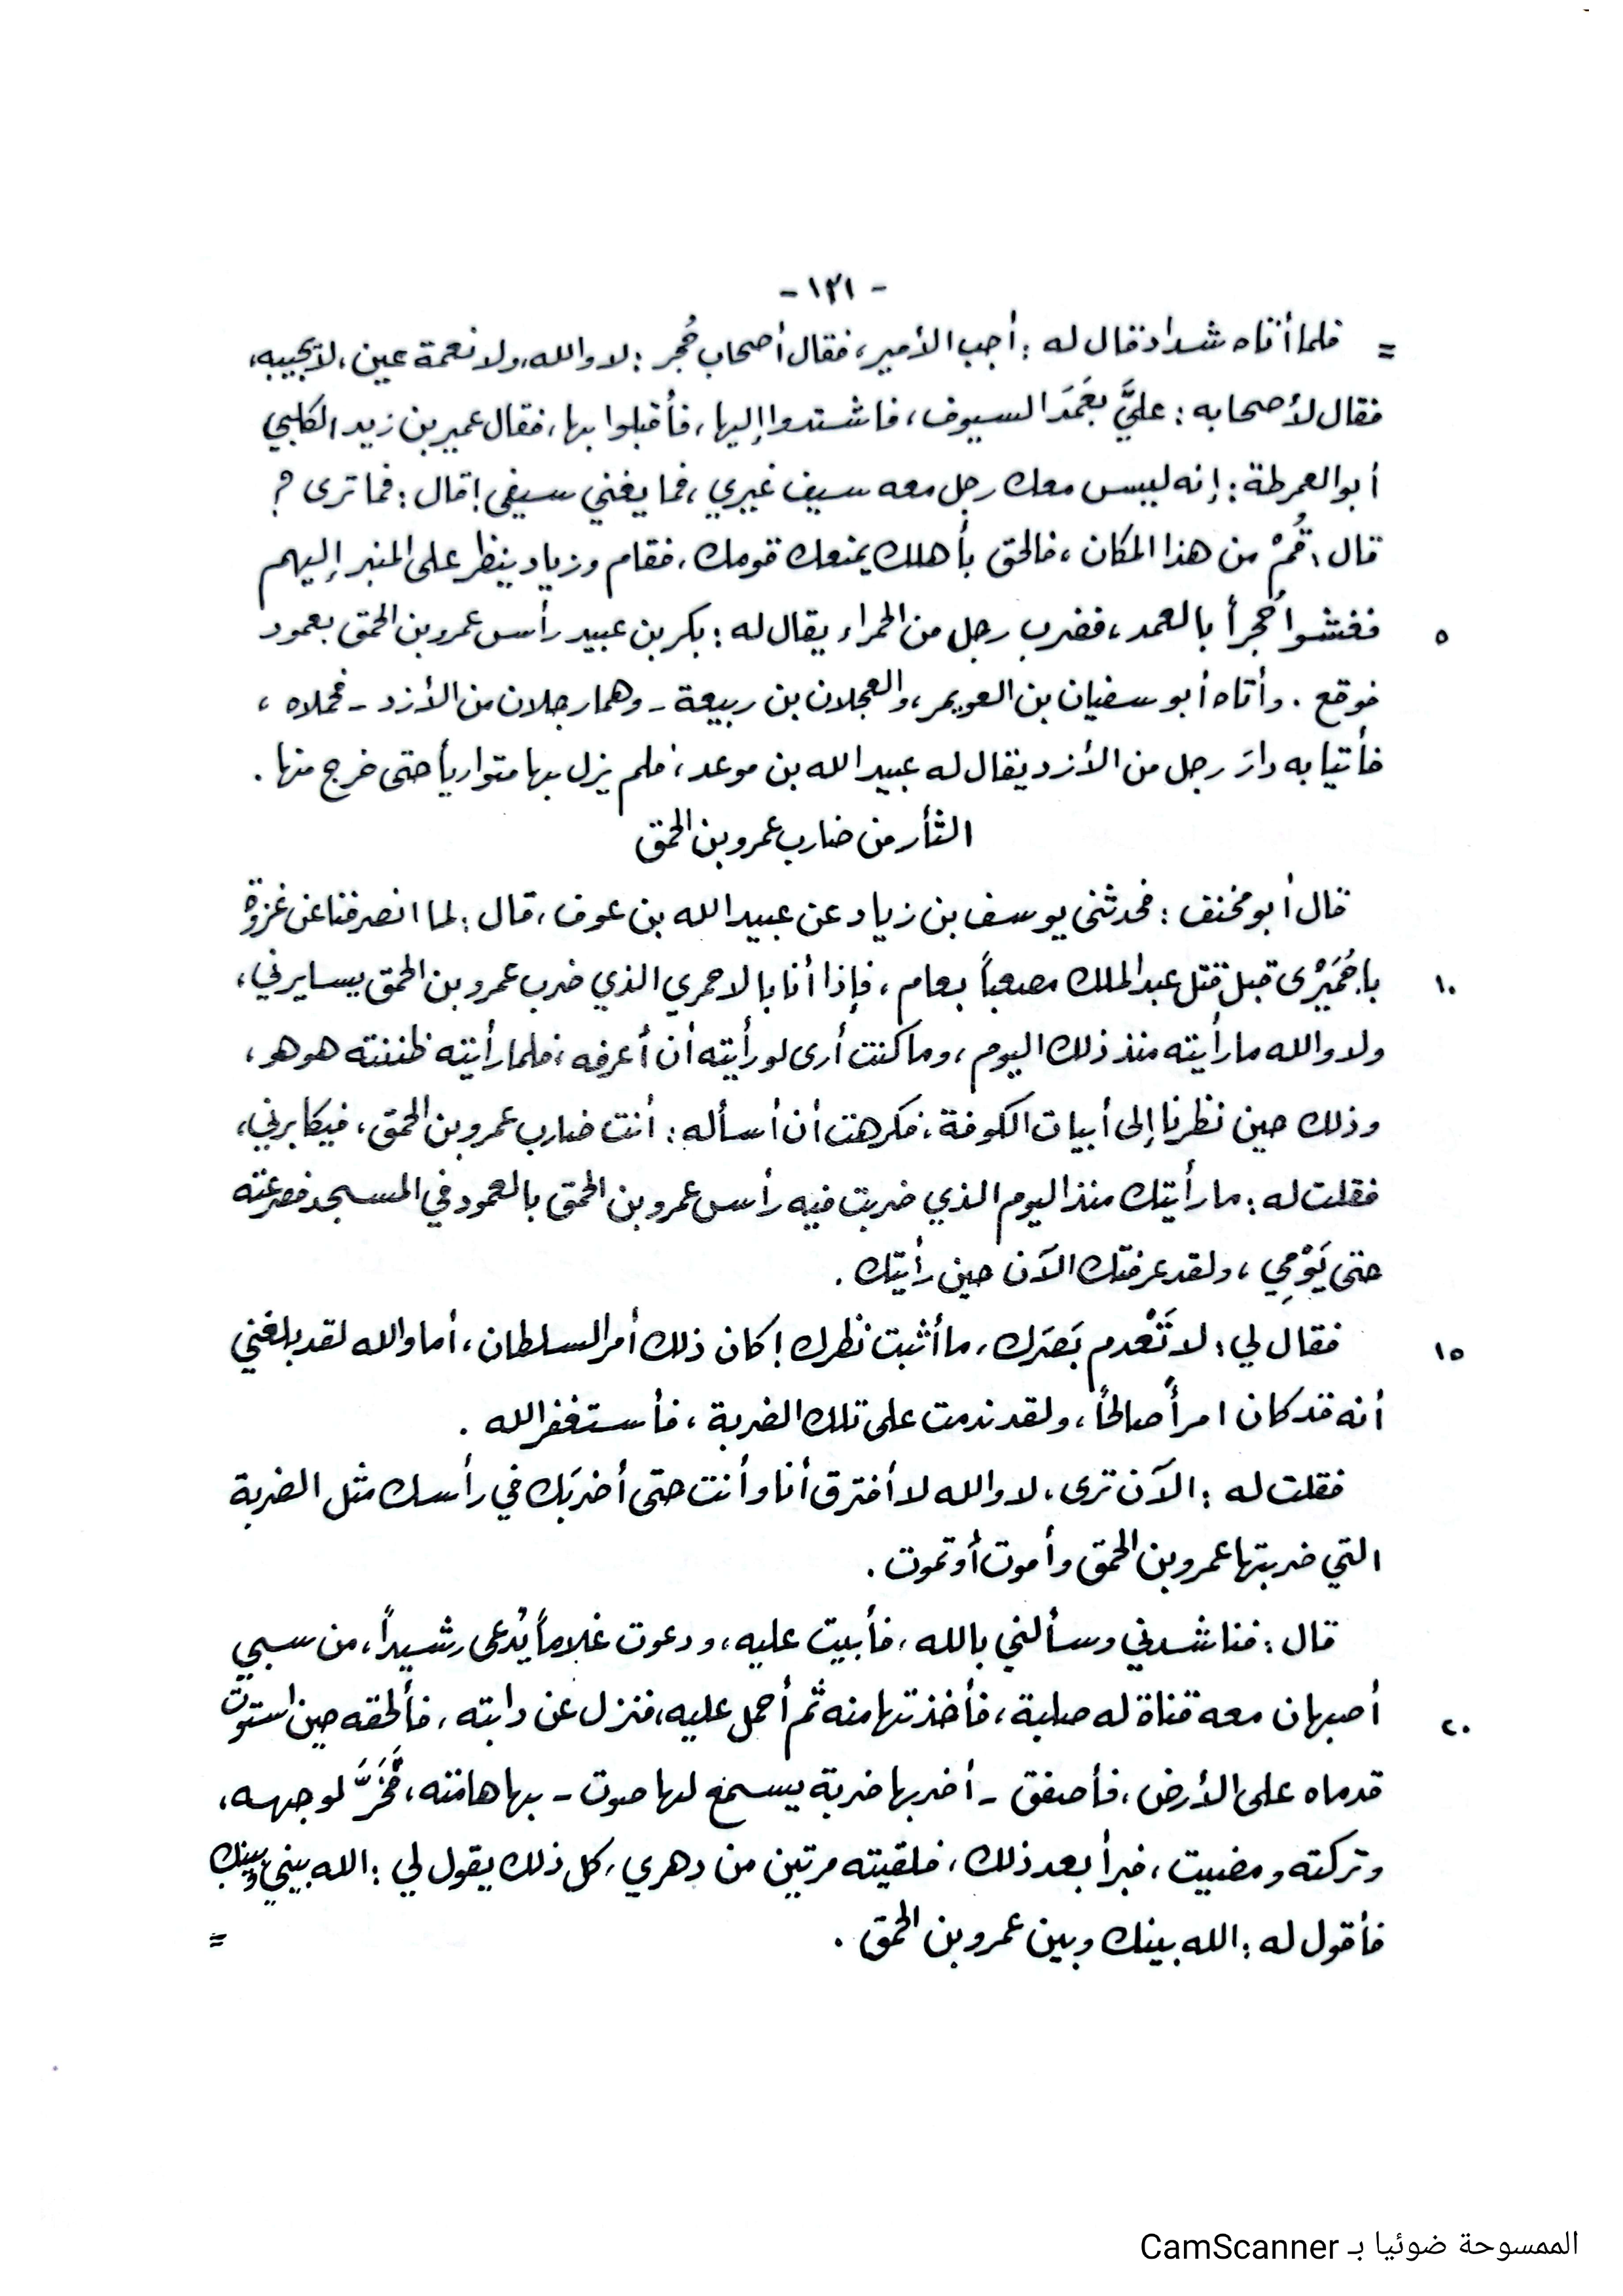 - ١٢١ -
= فلما أتاه شداد قال له : أجب الأمير ، فقال أصحاب حُجر : لا والله ، ولا نعمة عين ، لا نجيبه ،
فقال لأصحابه : عليَّ بعَمَد السيوف ، فاشتدوا إليها ، فأقبلوا بها ، فقال عمير بن زيد الكلبي
أبو العمرطة : إنه ليس معك رجل معه سيف غيري ، فما يغني سيفي ! قال : فما ترى ؟
قال : قُمْ من هذا المكان ، فالحق بأهلك يمنعك قومك ، فقام وزياد ينظر على المنبر إليهم
٥ فغشوا حُجراً بالعمد ، فضرب رجل من الحمراء يقال له : بكر بن عبيد رأس عمرو بن الحمق بعمود
فوقع . وأتاه أبو سفيان بن العويمر ، والعجلان بن ربيعة - وهما رجلان من الأزد - فحملاه ،
فأتيا به دارَ رجل من الأزد يقال له عبيد الله بن موعد ، فلم يزل بها متوارياً حتى خرج منها .
الثأر من ضارب عمرو بن الحمق
قال أبو مخنف : فحدثني يوسف بن زياد عن عبيد الله بن عوف ، قال : لما انصرفنا عن غزوة
١٠ باجُمَيْرى قبل قتل عبد الملك مصعباً بعام ، فإذا أنا بالاحمري الذي ضرب عمرو بن الحمق يسايرني ،
ولا والله ما رأيته منذ ذلك اليوم ، وما كنت أرى لو رأيته أن أعرفه ، فلما رأيته ظننته هو هو ،
وذلك حين نظرنا إلى أبيات الكوفة ، فكرهت أن أسأله : أنت ضارب عمرو بن الحمق ، فيكابرني ،
فقلت له : ما رأيتك منذ اليوم الذي ضربت فيه رأس عمرو بن الحمق بالعمود في المسجد فصرعته
حتى يَوْمِي ، ولقد عرفتك الآن حين رأيتك .
١٥ فقال لي : لا تَعْدم بَصَرك ، ما أثبت نظرك ! كان ذلك أمر السلطان ، أما والله لقد بلغني
أنه قد كان امرأً صالحاً ، ولقد ندمت على تلك الضربة ، فأستغفر الله .
فقلت له : الآن ترى ، لا والله لا أفترق أنا وأنت حتى أضربَك في رأسك مثل الضربة
التي ضربتها عمرو بن الحمق وأموت أو تموت .
قال : فناشدني وسألني بالله ، فأبيت عليه ، ودعوت غلاماً يُدعى رشيداً ، من سبي
٢٠ أصبهان معه قناة له صلبة ، فأخذتها منه ثم أحمل عليه ، فنزل عن دابته ، فألحقه حين استوت
قدماه على الأرض ، فأصفق - أضربها ضربة يسمع لها صوت - بها هامته ، فَخَرَّ لوجهه ،
وتركته ومضيت ، فبرأ بعد ذلك ، فلقيته مرتين من دهري ، كل ذلك يقول لي : الله بيني وبينك
فأقول له : الله بينك وبين عمرو بن الحمق . =
الممسوحة ضوئيا بـ CamScanner